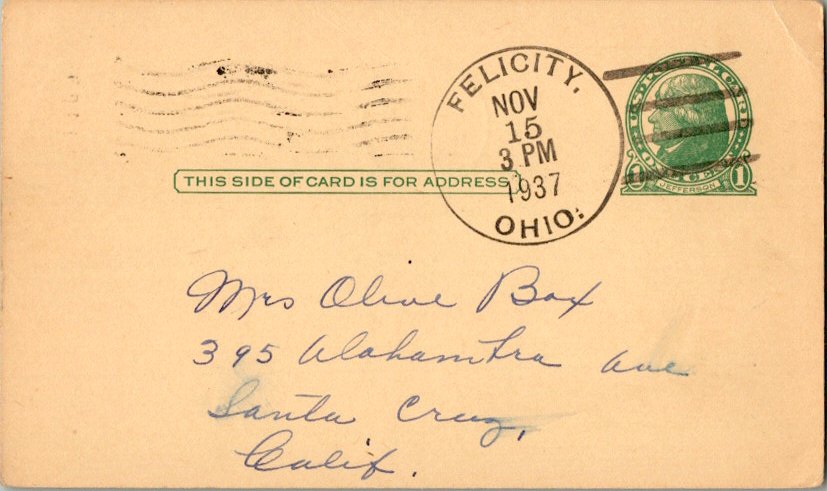 FELICITY,
NOV
15
3 PM
1937
OHIO.
U.S. POSTAL CARD
ONE CENT
1 JEFFERSON 1
THIS SIDE OF CARD IS FOR ADDRESS
Mrs Olive Box
395 Walahamtra Ave
Santa Cruz,
Calif.